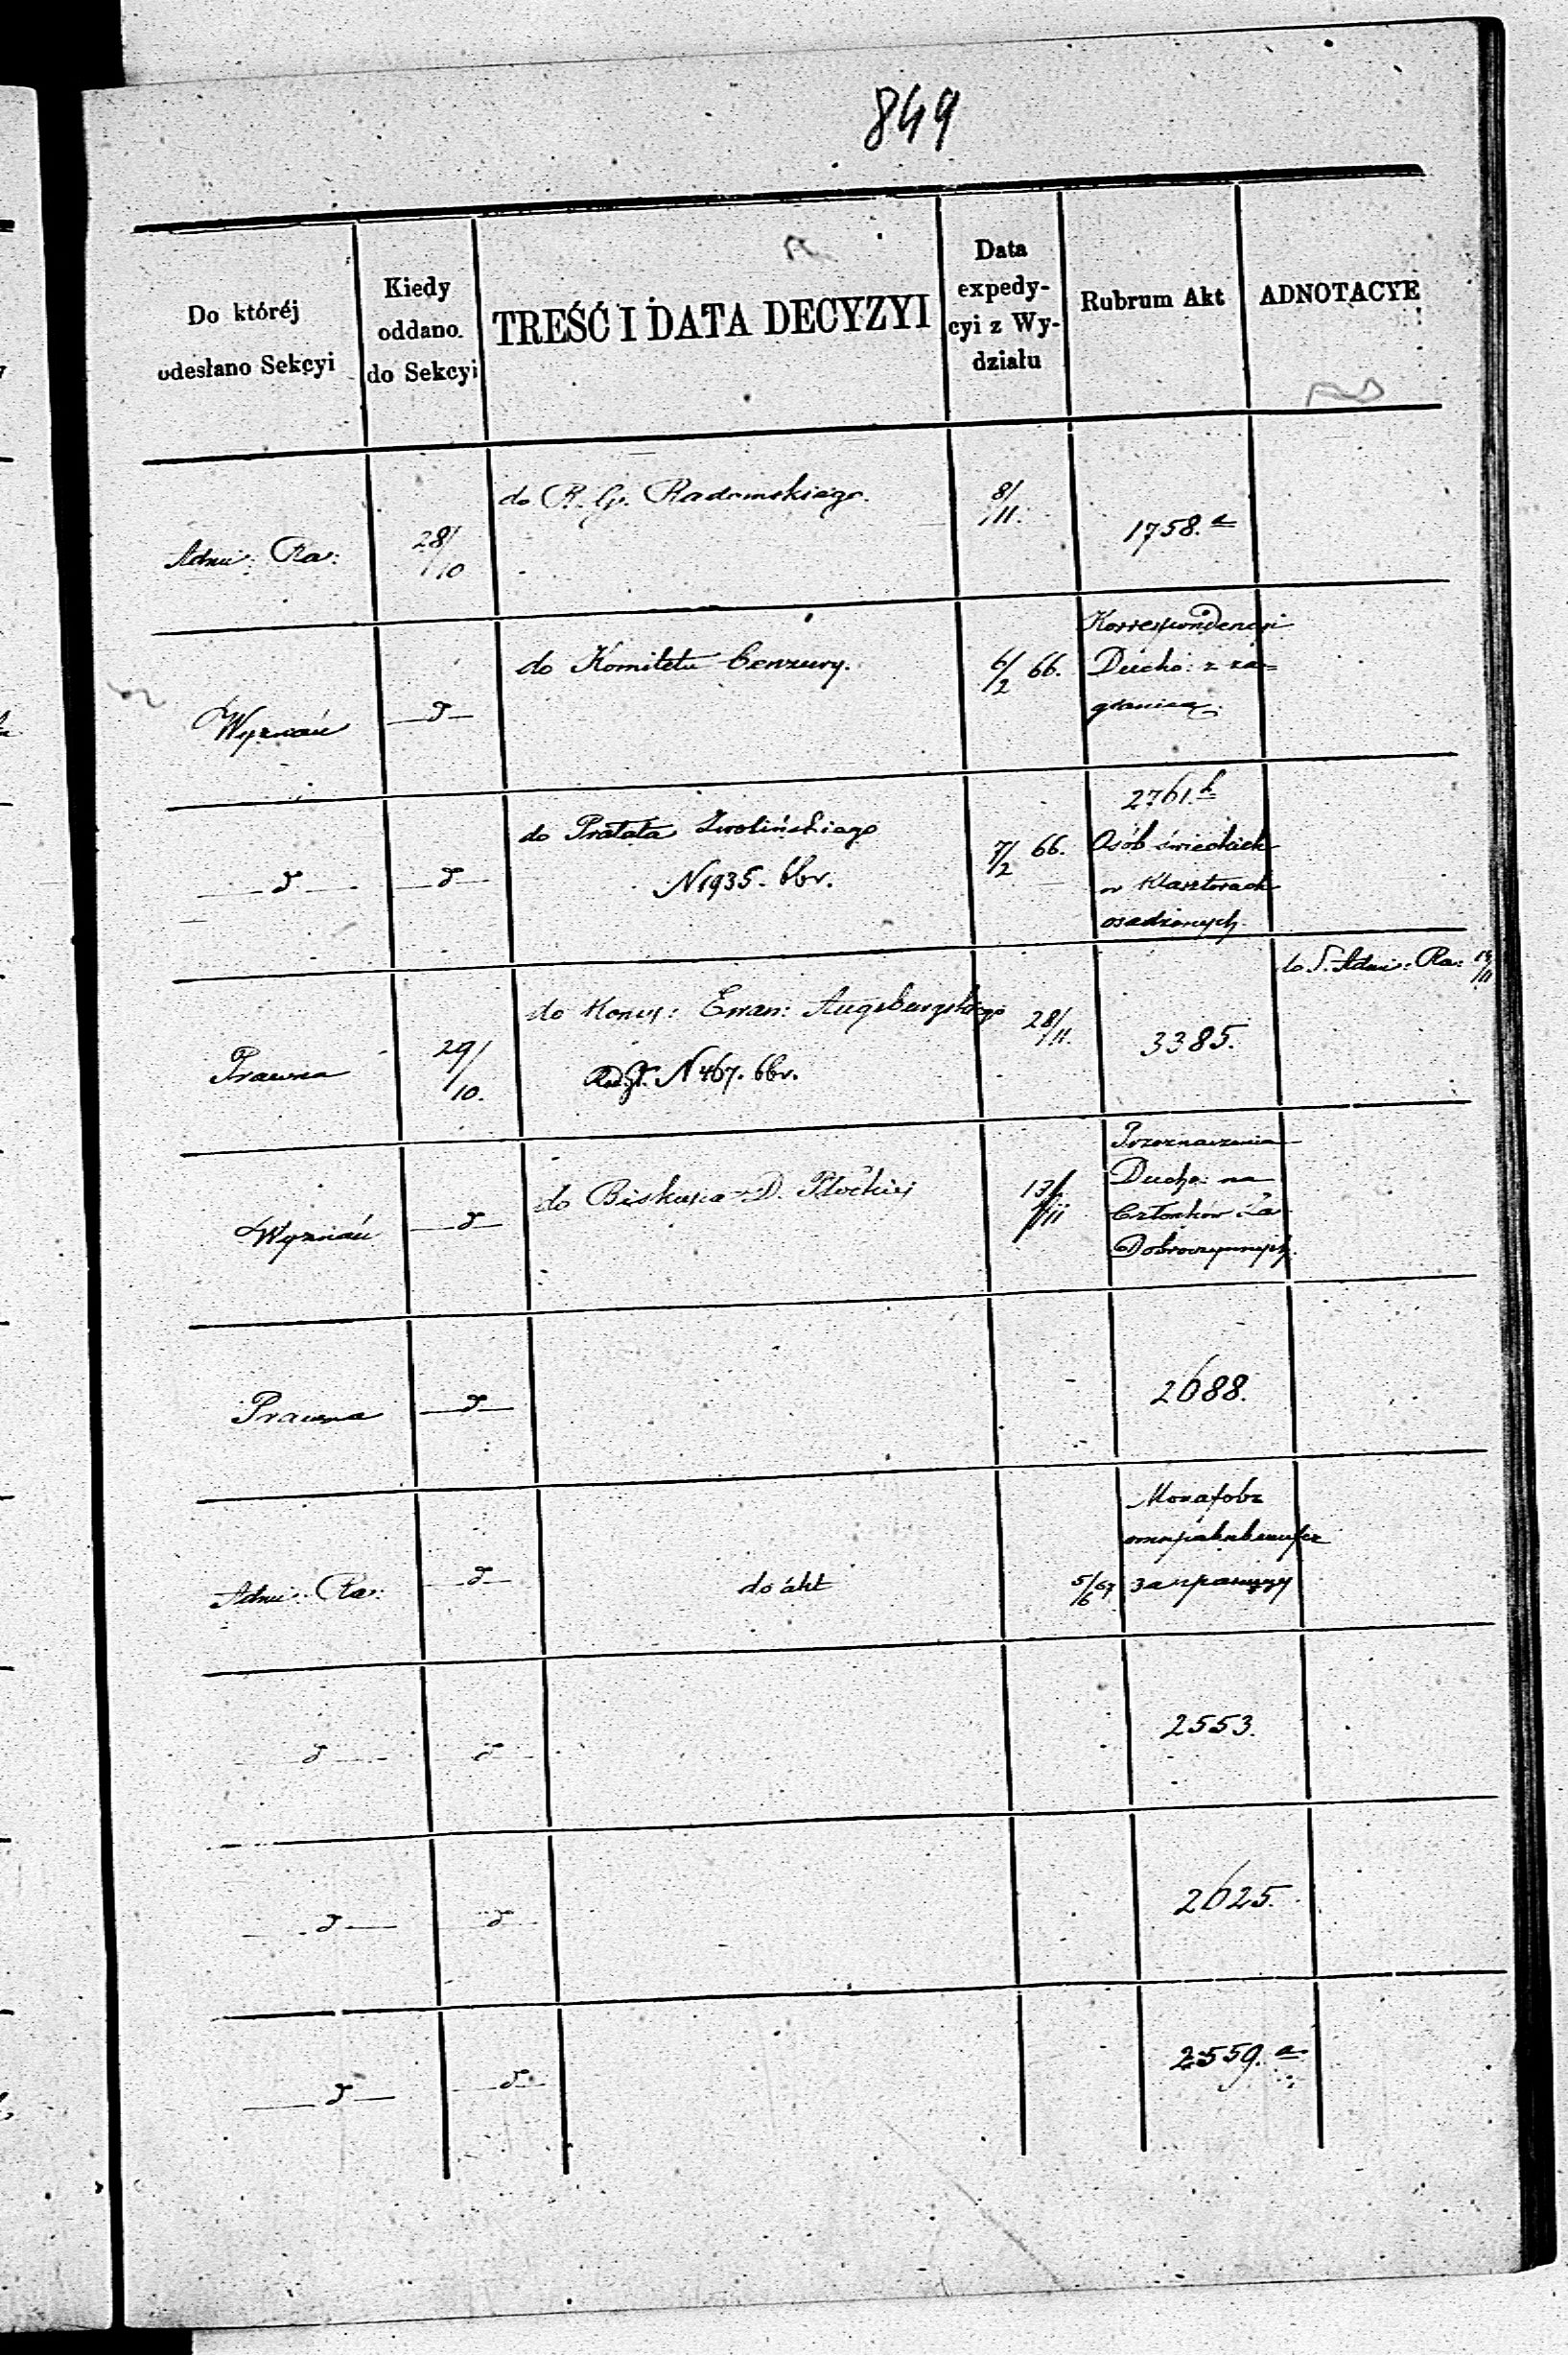 849
Do któréj
odesłano Sekcyi
Kiedy
oddano
do Sekcyi
TREŚĆ I DATA DECYZYI
Data
expedy-
cyi z Wy-
działu
Rubrum Akt
ADNOTACYE
Admi: Ra:
28/10
do R. G. Radomskiego.
8/11.
1758. a
Wyznań
d
do Komitetu Cenzury.
6/2 66.
Korrespondencyi
Ducho: z za=
granicą.
d
d
do Prałata Zwolińskiego
N 1935. bbr.
7/2 66.
2761. b
Osób świeckich
w Klasztorach
osadzonych
Prawna
29/10.
do Konsy: Ewan: Augsburgskiego
N 467. bbr.
28/11.
3385.
do S. Admi: Ra:
Wyznań
d
do Biskupa D. Płockiej
13/11
Przeznaczenia
Ducho: na
Członków
Dobroczynnych.
Prawna
d
2688.
Admi: Ra:
d
do akt
5/6 67
заграницу
d
d
2553.
d
d
2625.
d
d
2559. a